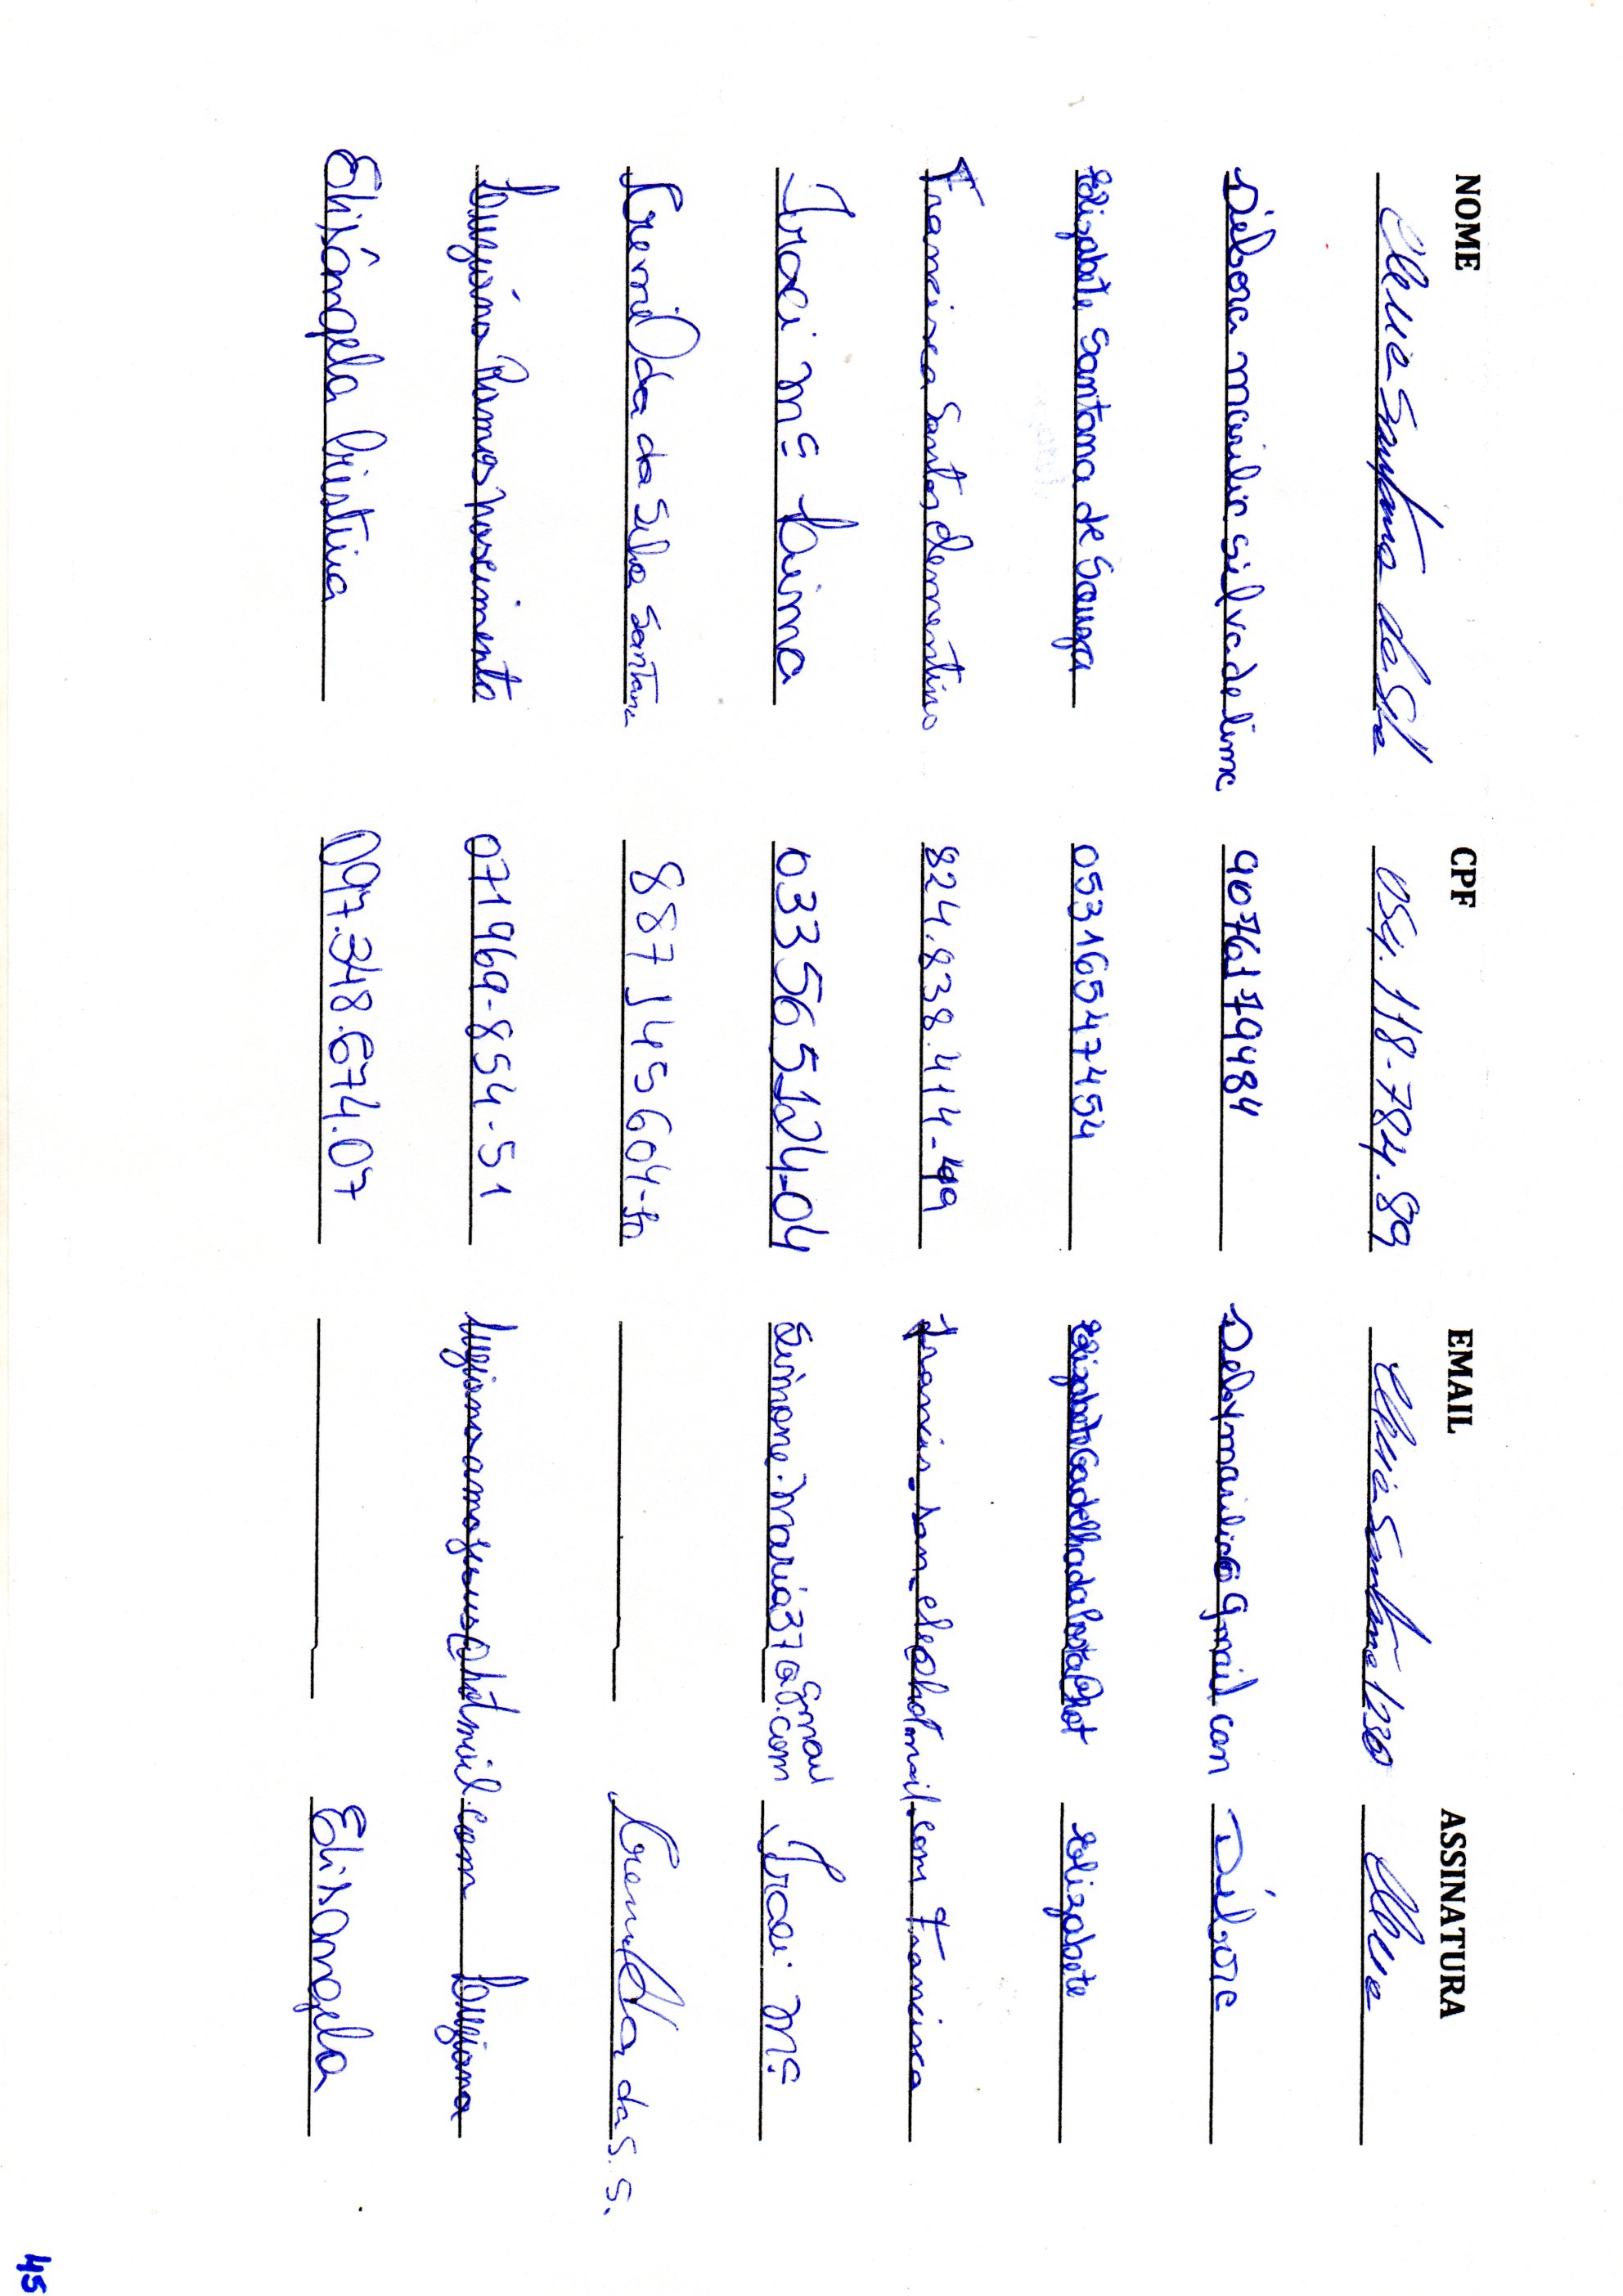 NOME CPF EMAIL ASSINATURA
Santana da Silva 054.118-784.89
Débora marilia silva de lima 9076179484 Debymarilia@gmail.com Débora
Elizabete Santana de Souza 05316547454 Elizabete
Francisca Santos clementino 824.838.414-49 francis_san_cle@hotmail.com Francisca
Iraci Mª Lima 033565124-04 Simone.maria37@gmail.com Iraci Mª
Cremilda da Silva Santana 887145604- Cremilda da S. S.
Luziana Ramos nascimento 071969-854-51 luzianaamajesus@hotmail.com Luziana
Elisângela Cristina 097.348.674.07 Elisangela
45